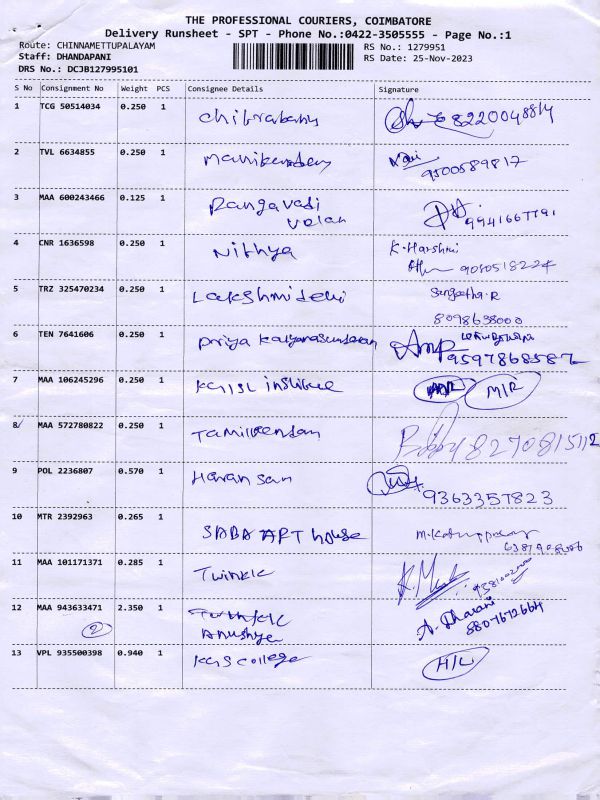 THE PROFESSIONAL COURIERS, COIMBATORE
Delivery Runsheet - SPT - Phone No.:0422-3505555 - Page No.:1
Route: CHINNAMETTUPALAYAM RS No.: 1279951
Staff: DHANDAPANI RS Date: 25-Nov-2023
DRS No.: DCJB127995101
S No Consignment No Weight PCS Consignee Details Signature
1 TCG 50514034 0.250 1
2 TVL 6634855 0.250 1 9500589817
3 MAA 600243466 0.125 1 Rangavadi
velan 9941667791
4 CNR 1636598 0.250 1 Nithya K. Harshni
5 TRZ 325470234 0.250 1 Lakshmidevi Sangeetha.R
8098638000
6 TEN 7641606 0.250 1 Priya Kalyanasundaram
9597868587
7 MAA 106245296 0.250 1 M/R
8 MAA 572780822 0.250 1 8270815112
9 POL 2236807 0.570 1 Haran san
9363357823
10 MTR 2392963 0.265 1 SABA ART house
11 MAA 101171371 0.285 1 Twinkle
12 MAA 943633471 2.350 1 A. Dharani
2 Anushya 8807672664
13 VPL 935500398 0.940 1 KGiS college